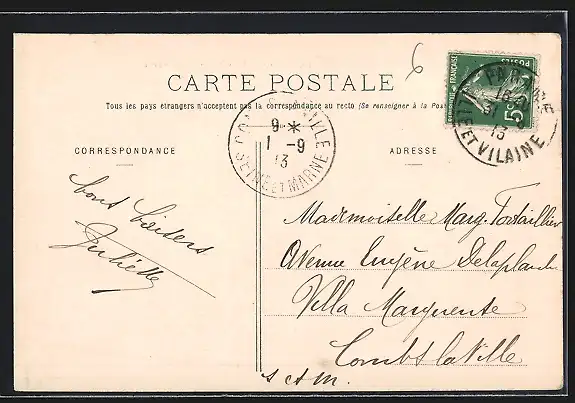 CARTE POSTALE
Tous les pays étrangers n'acceptent pas la correspondance au recto (Se renseigner à la Poste
CORRESPONDANCE
ADRESSE
COMBS-LA-VILLE
9 *
1 - 9
13
SEINE ET MARNE
POSTES
5c
13
ILLE ET VILAINE
bons baisers
Juliette
Mademoiselle Marg.
Avenue Eugène Delaplanche
Villa Marguerite
Combs la Ville
S et M.